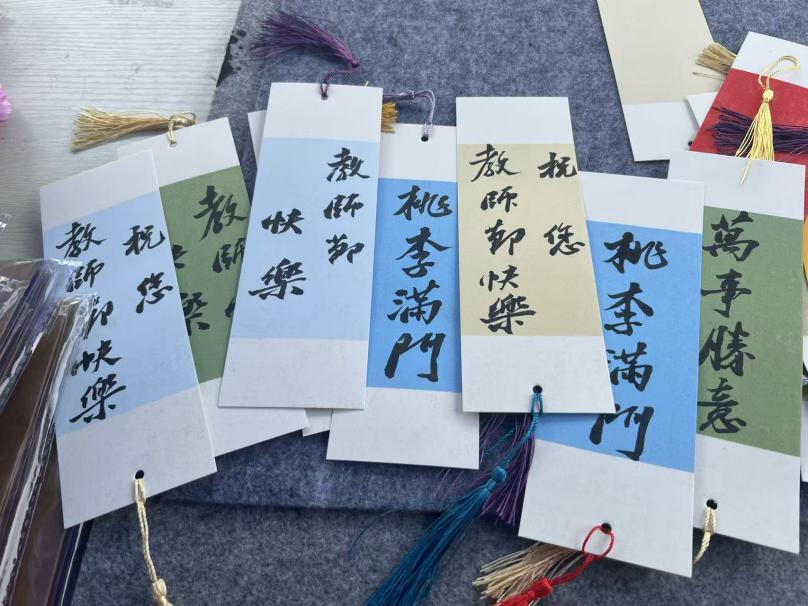 祝您
教師節快樂
教師
教師節
快樂
桃李滿門
祝您
教師節快樂
桃李滿門
萬事勝意